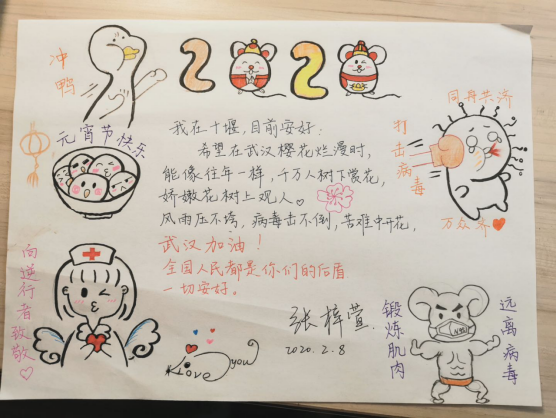 冲鸭
2020
元宵节快乐
我在十堰,目前安好:
希望在武汉樱花烂漫时,
能像往年一样,千万人树下赏花,
娇嫩花树上观人。
风雨压不垮,病毒击不倒,苦难中开花,
武汉加油!
全国人民都是你们的后盾
一切安好。
张梓萱
2020.2.8
I Love you
向逆行者致敬
同舟共济
打击病毒
万众一心
锻炼肌肉
远离病毒
N95